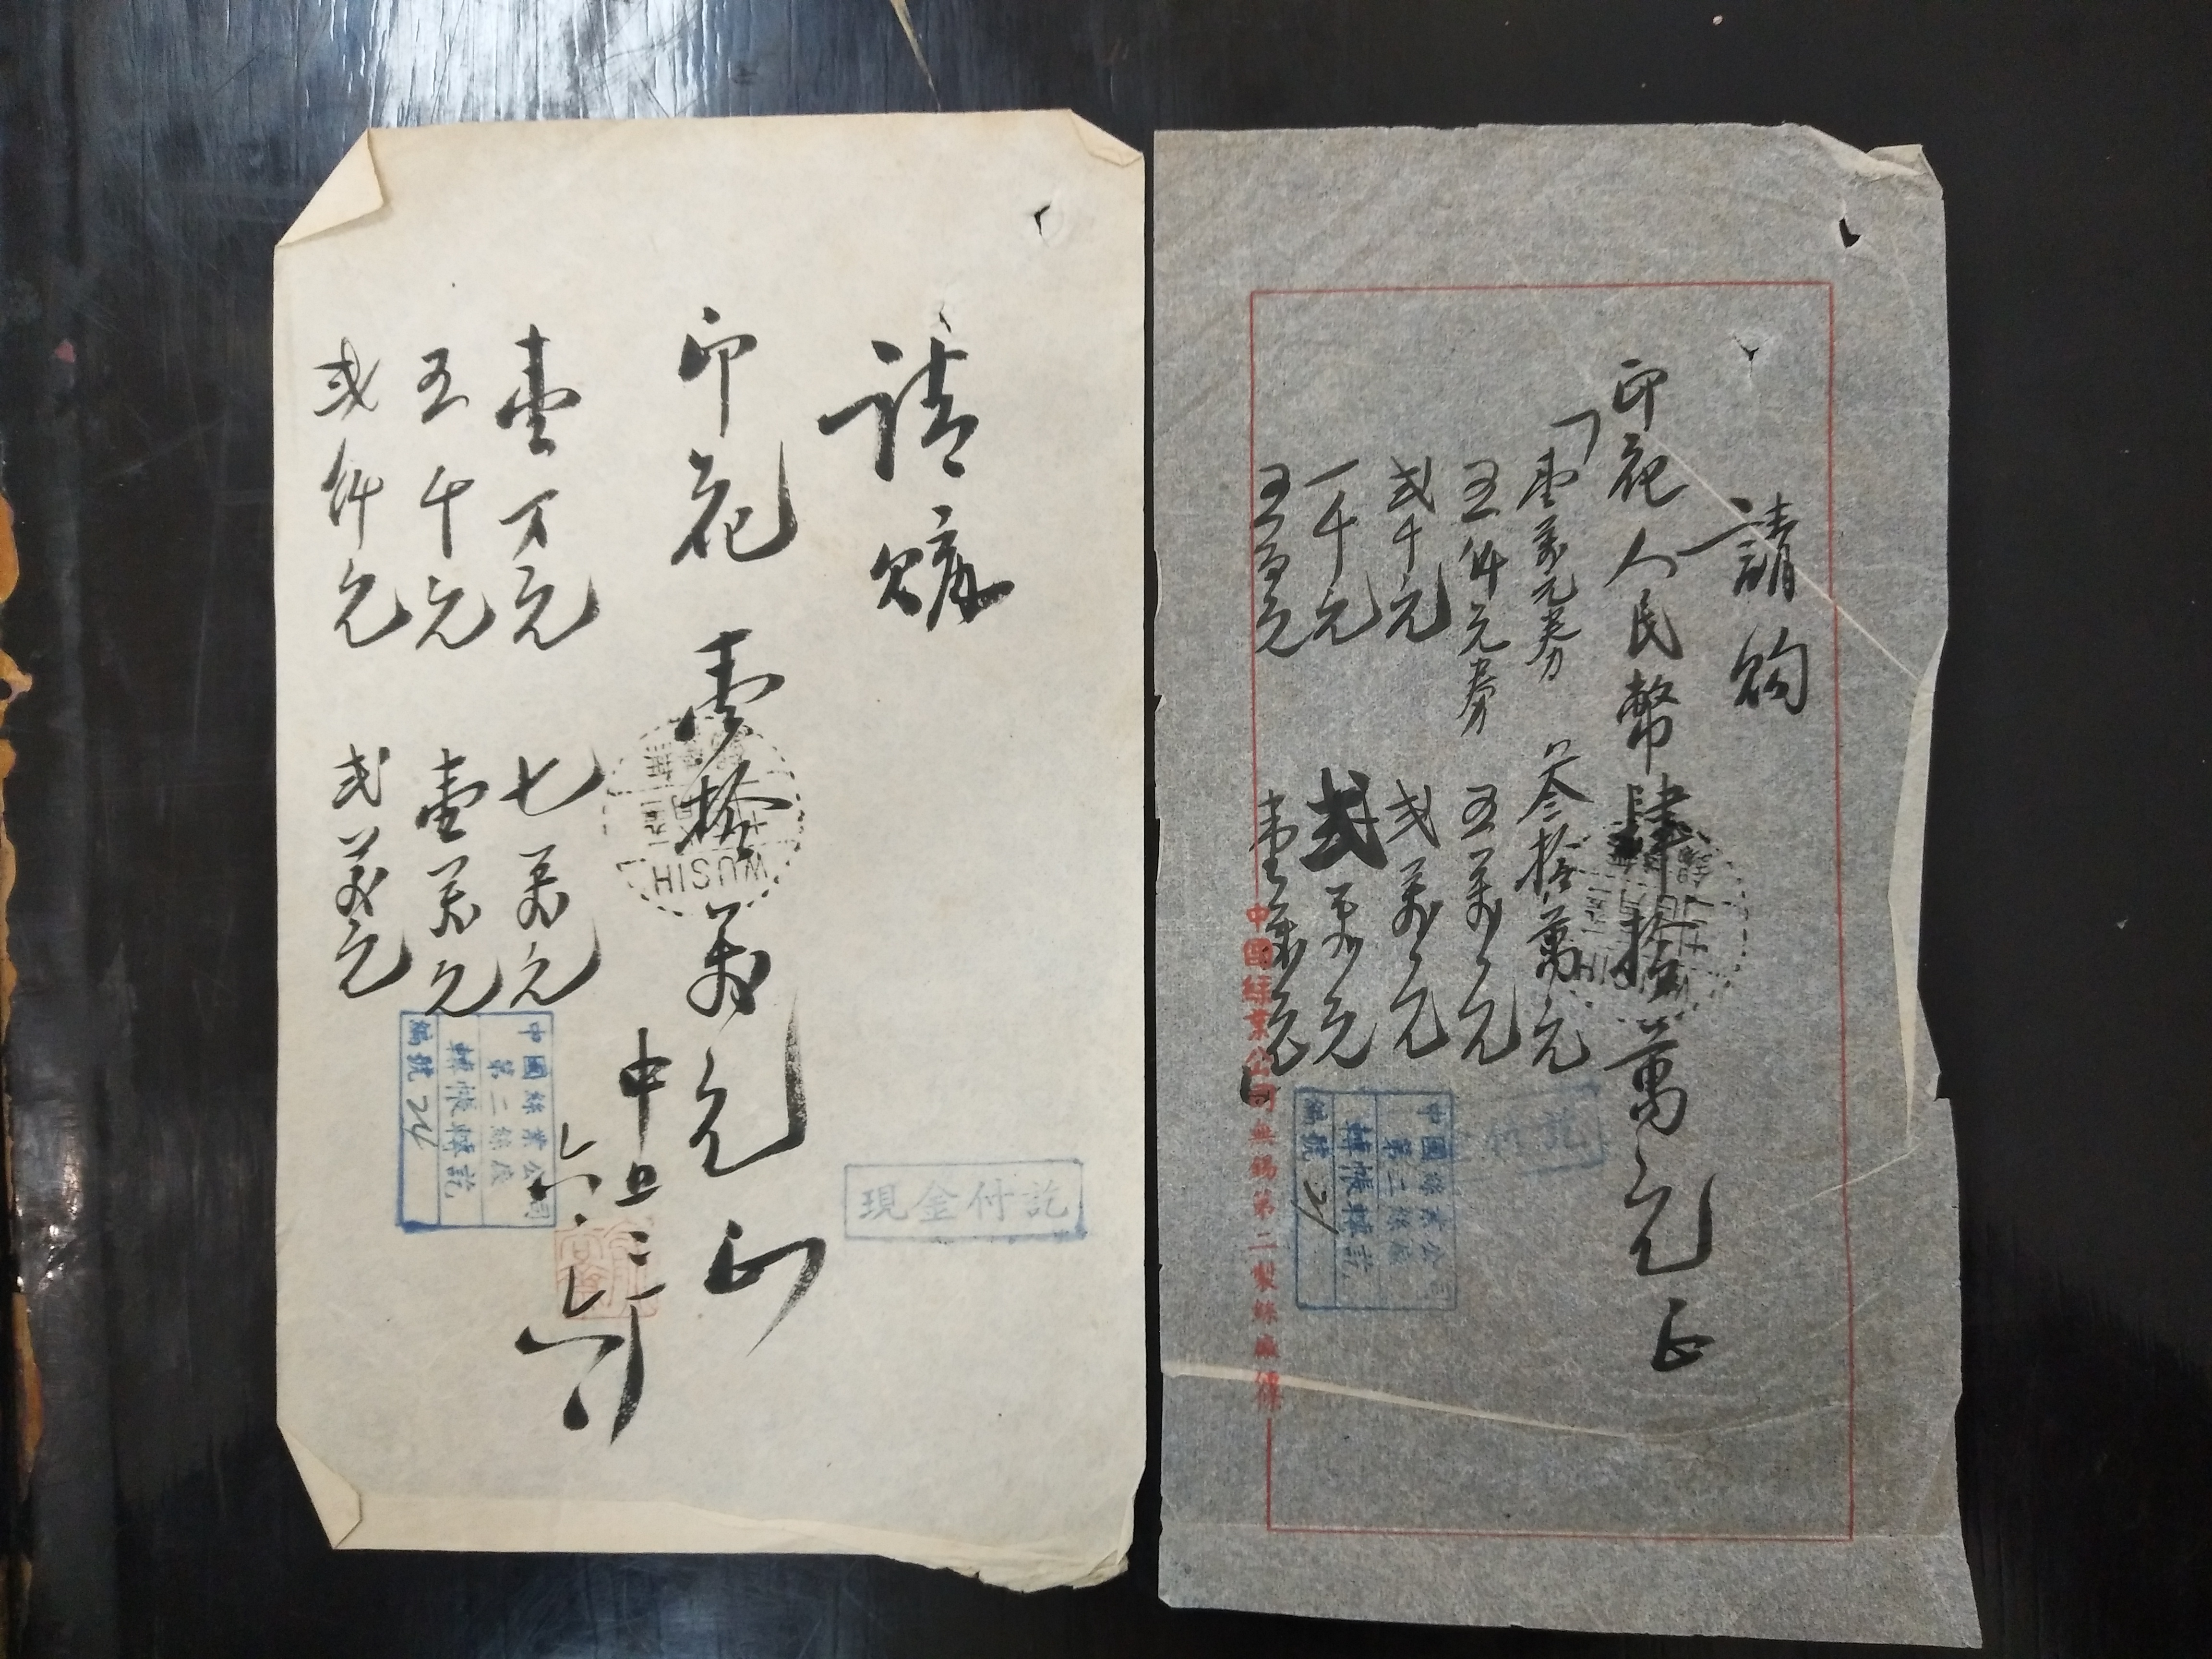 請購
印花壹拾萬元正
壹万元 七萬元
五千元 壹萬元
弍仟元 弍萬元
中旦
WUSIH
現金付訖
中國絲業公司
第二絲廠
轉帳轉訖
編號 24
請购
印花人民幣肆拾萬元正
壹萬元券 叁拾萬元
五仟元券 五萬元
弍千元 弍萬元
一千元 弍萬元
五百元 壹萬元
付訖
中國絲業公司
第二絲廠
轉帳轉訖
編號
中國絲業公司無錫第二製絲廠